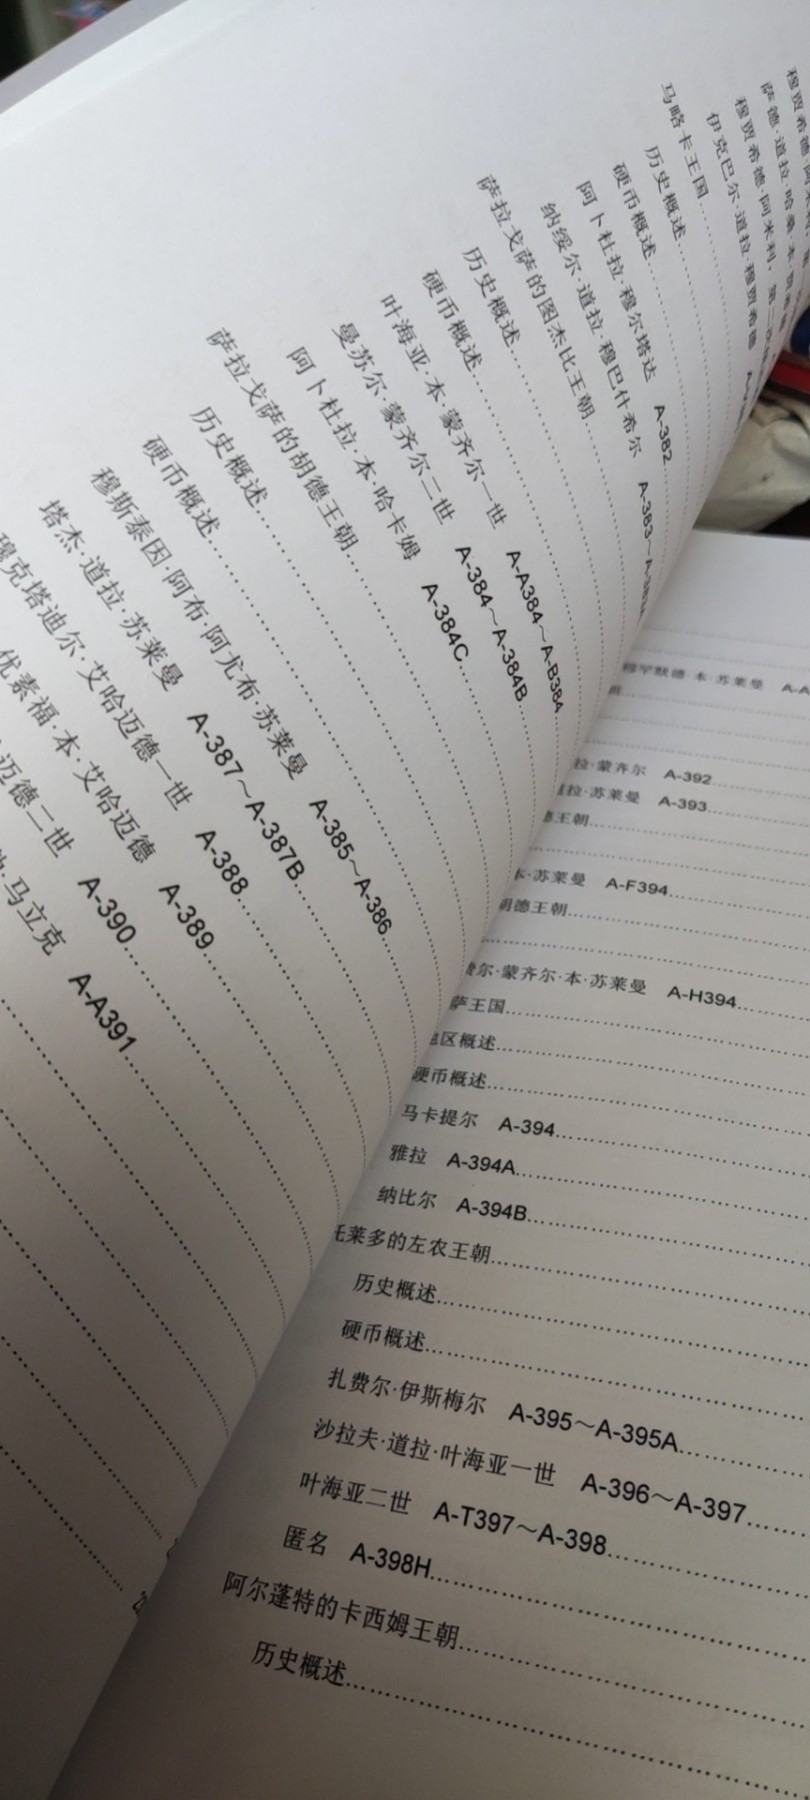 伊克巴尔·道拉·穆贾希德
马略卡王国
历史概述
硬币概述
阿卜杜拉·穆尔塔达 A-382
纳绥尔·道拉·穆巴什希尔 A-383～
萨拉戈萨的图杰比王朝
历史概述
硬币概述
叶海亚·本·蒙齐尔一世 A-A384～A-B384
曼苏尔·蒙齐尔二世 A-384～A-384B
阿卜杜拉·本·哈卡姆 A-384C
萨拉戈萨的胡德王朝
历史概述
硬币概述
穆斯泰因·阿布·阿尤布·苏莱曼 A-385～A-386
塔杰·道拉·苏莱曼 A-387～A-387B
穆克塔迪尔·艾哈迈德一世 A-388
优素福·本·艾哈迈德 A-389
迈德二世 A-390
马立克 A-A391
穆罕默德·本·苏莱曼
拉·蒙齐尔 A-392
拉·苏莱曼 A-393
德王朝
本·苏莱曼 A-F394
胡德王朝
费尔·蒙齐尔·本·苏莱曼 A-H394
萨王国
地区概述
硬币概述
马卡提尔 A-394
雅拉 A-394A
纳比尔 A-394B
托莱多的左农王朝
历史概述
硬币概述
扎费尔·伊斯梅尔 A-395～A-395A
沙拉夫·道拉·叶海亚一世 A-396～A-397
叶海亚二世 A-T397～A-398
匿名 A-398H
阿尔蓬特的卡西姆王朝
历史概述